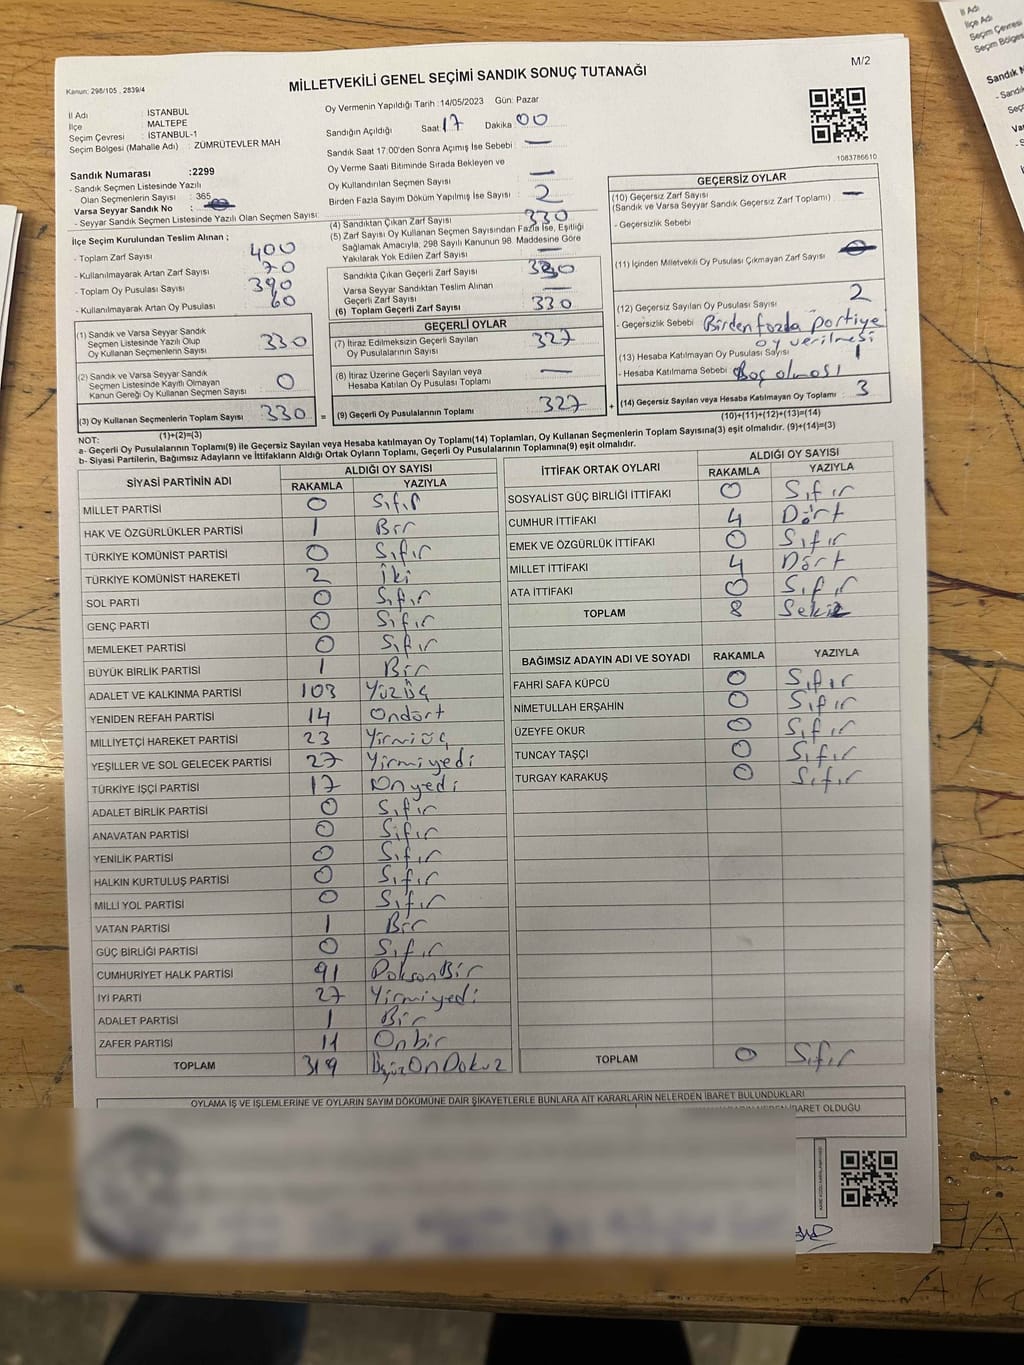 M/2
Kanun: 298/105 , 2839/4
MİLLETVEKİLİ GENEL SEÇİMİ SANDIK SONUÇ TUTANAĞI
İl Adı : İSTANBUL
İlçe : MALTEPE
Seçim Çevresi : İSTANBUL-1
Seçim Bölgesi (Mahalle Adı) : ZÜMRÜTEVLER MAH
Sandık Numarası :2299
- Sandık Seçmen Listesinde Yazılı
Olan Seçmenlerin Sayısı : 365
Varsa Seyyar Sandık No :
- Seyyar Sandık Seçmen Listesinde Yazılı Olan Seçmen Sayısı:
İlçe Seçim Kurulundan Teslim Alınan ;
- Toplam Zarf Sayısı 400
- Kullanılmayarak Artan Zarf Sayısı 70
- Toplam Oy Pusulası Sayısı 390
- Kullanılmayarak Artan Oy Pusulası 60
(1) Sandık ve Varsa Seyyar Sandık
Seçmen Listesinde Yazılı Olup
Oy Kullanan Seçmenlerin Sayısı 330
(2) Sandık ve Varsa Seyyar Sandık
Seçmen Listesinde Kayıtlı Olmayan
Kanun Gereği Oy Kullanan Seçmen Sayısı 0
(3) Oy Kullanan Seçmenlerin Toplam Sayısı 330 =
(1)+(2)=(3)
Oy Vermenin Yapıldığı Tarih :14/05/2023 Gün: Pazar
Sandığın Açıldığı Saat 17 Dakika 00
Sandık Saat 17:00'den Sonra Açımış İse Sebebi : —
Oy Verme Saati Bitiminde Sırada Bekleyen ve
Oy Kullandırılan Seçmen Sayısı —
Birden Fazla Sayım Döküm Yapılmış İse Sayısı 2
(4) Sandıktan Çıkan Zarf Sayısı 330
(5) Zarf Sayısı Oy Kullanan Seçmen Sayısından Fazla İse, Eşitliği
Sağlamak Amacıyla, 298 Sayılı Kanunun 98. Maddesine Göre
Yakılarak Yok Edilen Zarf Sayısı —
Sandıkta Çıkan Geçerli Zarf Sayısı 330
Varsa Seyyar Sandıktan Teslim Alınan
Geçerli Zarf Sayısı —
(6) Toplam Geçerli Zarf Sayısı 330
GEÇERLİ OYLAR
(7) İtiraz Edilmeksizin Geçerli Sayılan
Oy Pusulalarının Sayısı 327
(8) İtiraz Üzerine Geçerli Sayılan veya
Hesaba Katılan Oy Pusulası Toplamı —
(9) Geçerli Oy Pusulalarının Toplamı 327 +
1083786610
GEÇERSİZ OYLAR
(10) Geçersiz Zarf Sayısı —
(Sandık ve Varsa Seyyar Sandık Geçersiz Zarf Toplamı)
- Geçersizlik Sebebi
(11) İçinden Milletvekili Oy Pusulası Çıkmayan Zarf Sayısı
(12) Geçersiz Sayılan Oy Pusulası Sayısı 2
- Geçersizlik Sebebi Birden fazla partiye
oy verilmesi
(13) Hesaba Katılmayan Oy Pusulası Sayısı 1
- Hesaba Katılmama Sebebi Boş olması
(14) Geçersiz Sayılan veya Hesaba Katılmayan Oy Toplamı 3
(10)+(11)+(12)+(13)=(14)
NOT:
a- Geçerli Oy Pusulalarının Toplamı(9) ile Geçersiz Sayılan veya Hesaba katılmayan Oy Toplamı(14) Toplamları, Oy Kullanan Seçmenlerin Toplam Sayısına(3) eşit olmalıdır. (9)+(14)=(3)
b- Siyasi Partilerin, Bağımsız Adayların ve İttifakların Aldığı Ortak Oyların Toplamı, Geçerli Oy Pusulalarının Toplamına(9) eşit olmalıdır.
SİYASİ PARTİNİN ADI ALDIĞI OY SAYISI
RAKAMLA YAZIYLA
MİLLET PARTİSİ 0 Sıfır
HAK VE ÖZGÜRLÜKLER PARTİSİ 1 Bir
TÜRKİYE KOMÜNİST PARTİSİ 0 Sıfır
TÜRKİYE KOMÜNİST HAREKETİ 2 İki
SOL PARTİ 0 Sıfır
GENÇ PARTİ 0 Sıfır
MEMLEKET PARTİSİ 0 Sıfır
BÜYÜK BİRLİK PARTİSİ 1 Bir
ADALET VE KALKINMA PARTİSİ 103 Yüzüç
YENİDEN REFAH PARTİSİ 14 Ondört
MİLLİYETÇİ HAREKET PARTİSİ 23 Yirmiüç
YEŞİLLER VE SOL GELECEK PARTİSİ 27 Yirmiyedi
TÜRKİYE İŞÇİ PARTİSİ 17 Onyedi
ADALET BİRLİK PARTİSİ 0 Sıfır
ANAVATAN PARTİSİ 0 Sıfır
YENİLİK PARTİSİ 0 Sıfır
HALKIN KURTULUŞ PARTİSİ 0 Sıfır
MİLLİ YOL PARTİSİ 0 Sıfır
VATAN PARTİSİ 1 Bir
GÜÇ BİRLİĞİ PARTİSİ 0 Sıfır
CUMHURİYET HALK PARTİSİ 91 DoksanBir
İYİ PARTİ 27 Yirmiyedi
ADALET PARTİSİ 1 Bir
ZAFER PARTİSİ 11 Onbir
TOPLAM 319 ÜçyüzOnDokuz
İTTİFAK ORTAK OYLARI ALDIĞI OY SAYISI
RAKAMLA YAZIYLA
SOSYALİST GÜÇ BİRLİĞİ İTTİFAKI 0 Sıfır
CUMHUR İTTİFAKI 4 Dört
EMEK VE ÖZGÜRLÜK İTTİFAKI 0 Sıfır
MİLLET İTTİFAKI 4 Dört
ATA İTTİFAKI 0 Sıfır
TOPLAM 8 Sekiz
BAĞIMSIZ ADAYIN ADI VE SOYADI RAKAMLA YAZIYLA
FAHRİ SAFA KÜPCÜ 0 Sıfır
NİMETULLAH ERŞAHİN 0 Sıfır
ÜZEYFE OKUR 0 Sıfır
TUNCAY TAŞÇI 0 Sıfır
TURGAY KARAKUŞ 0 Sıfır
TOPLAM 0 Sıfır
OYLAMA İŞ VE İŞLEMLERİNE VE OYLARIN SAYIM DÖKÜMÜNE DAİR ŞİKAYETLERLE BUNLARA AİT KARARLARIN NELERDEN İBARET BULUNDUKLARI
İBARET OLDUĞU
İl Adı
İlçe Adı
Seçim Çevresi
Seçim Bölges